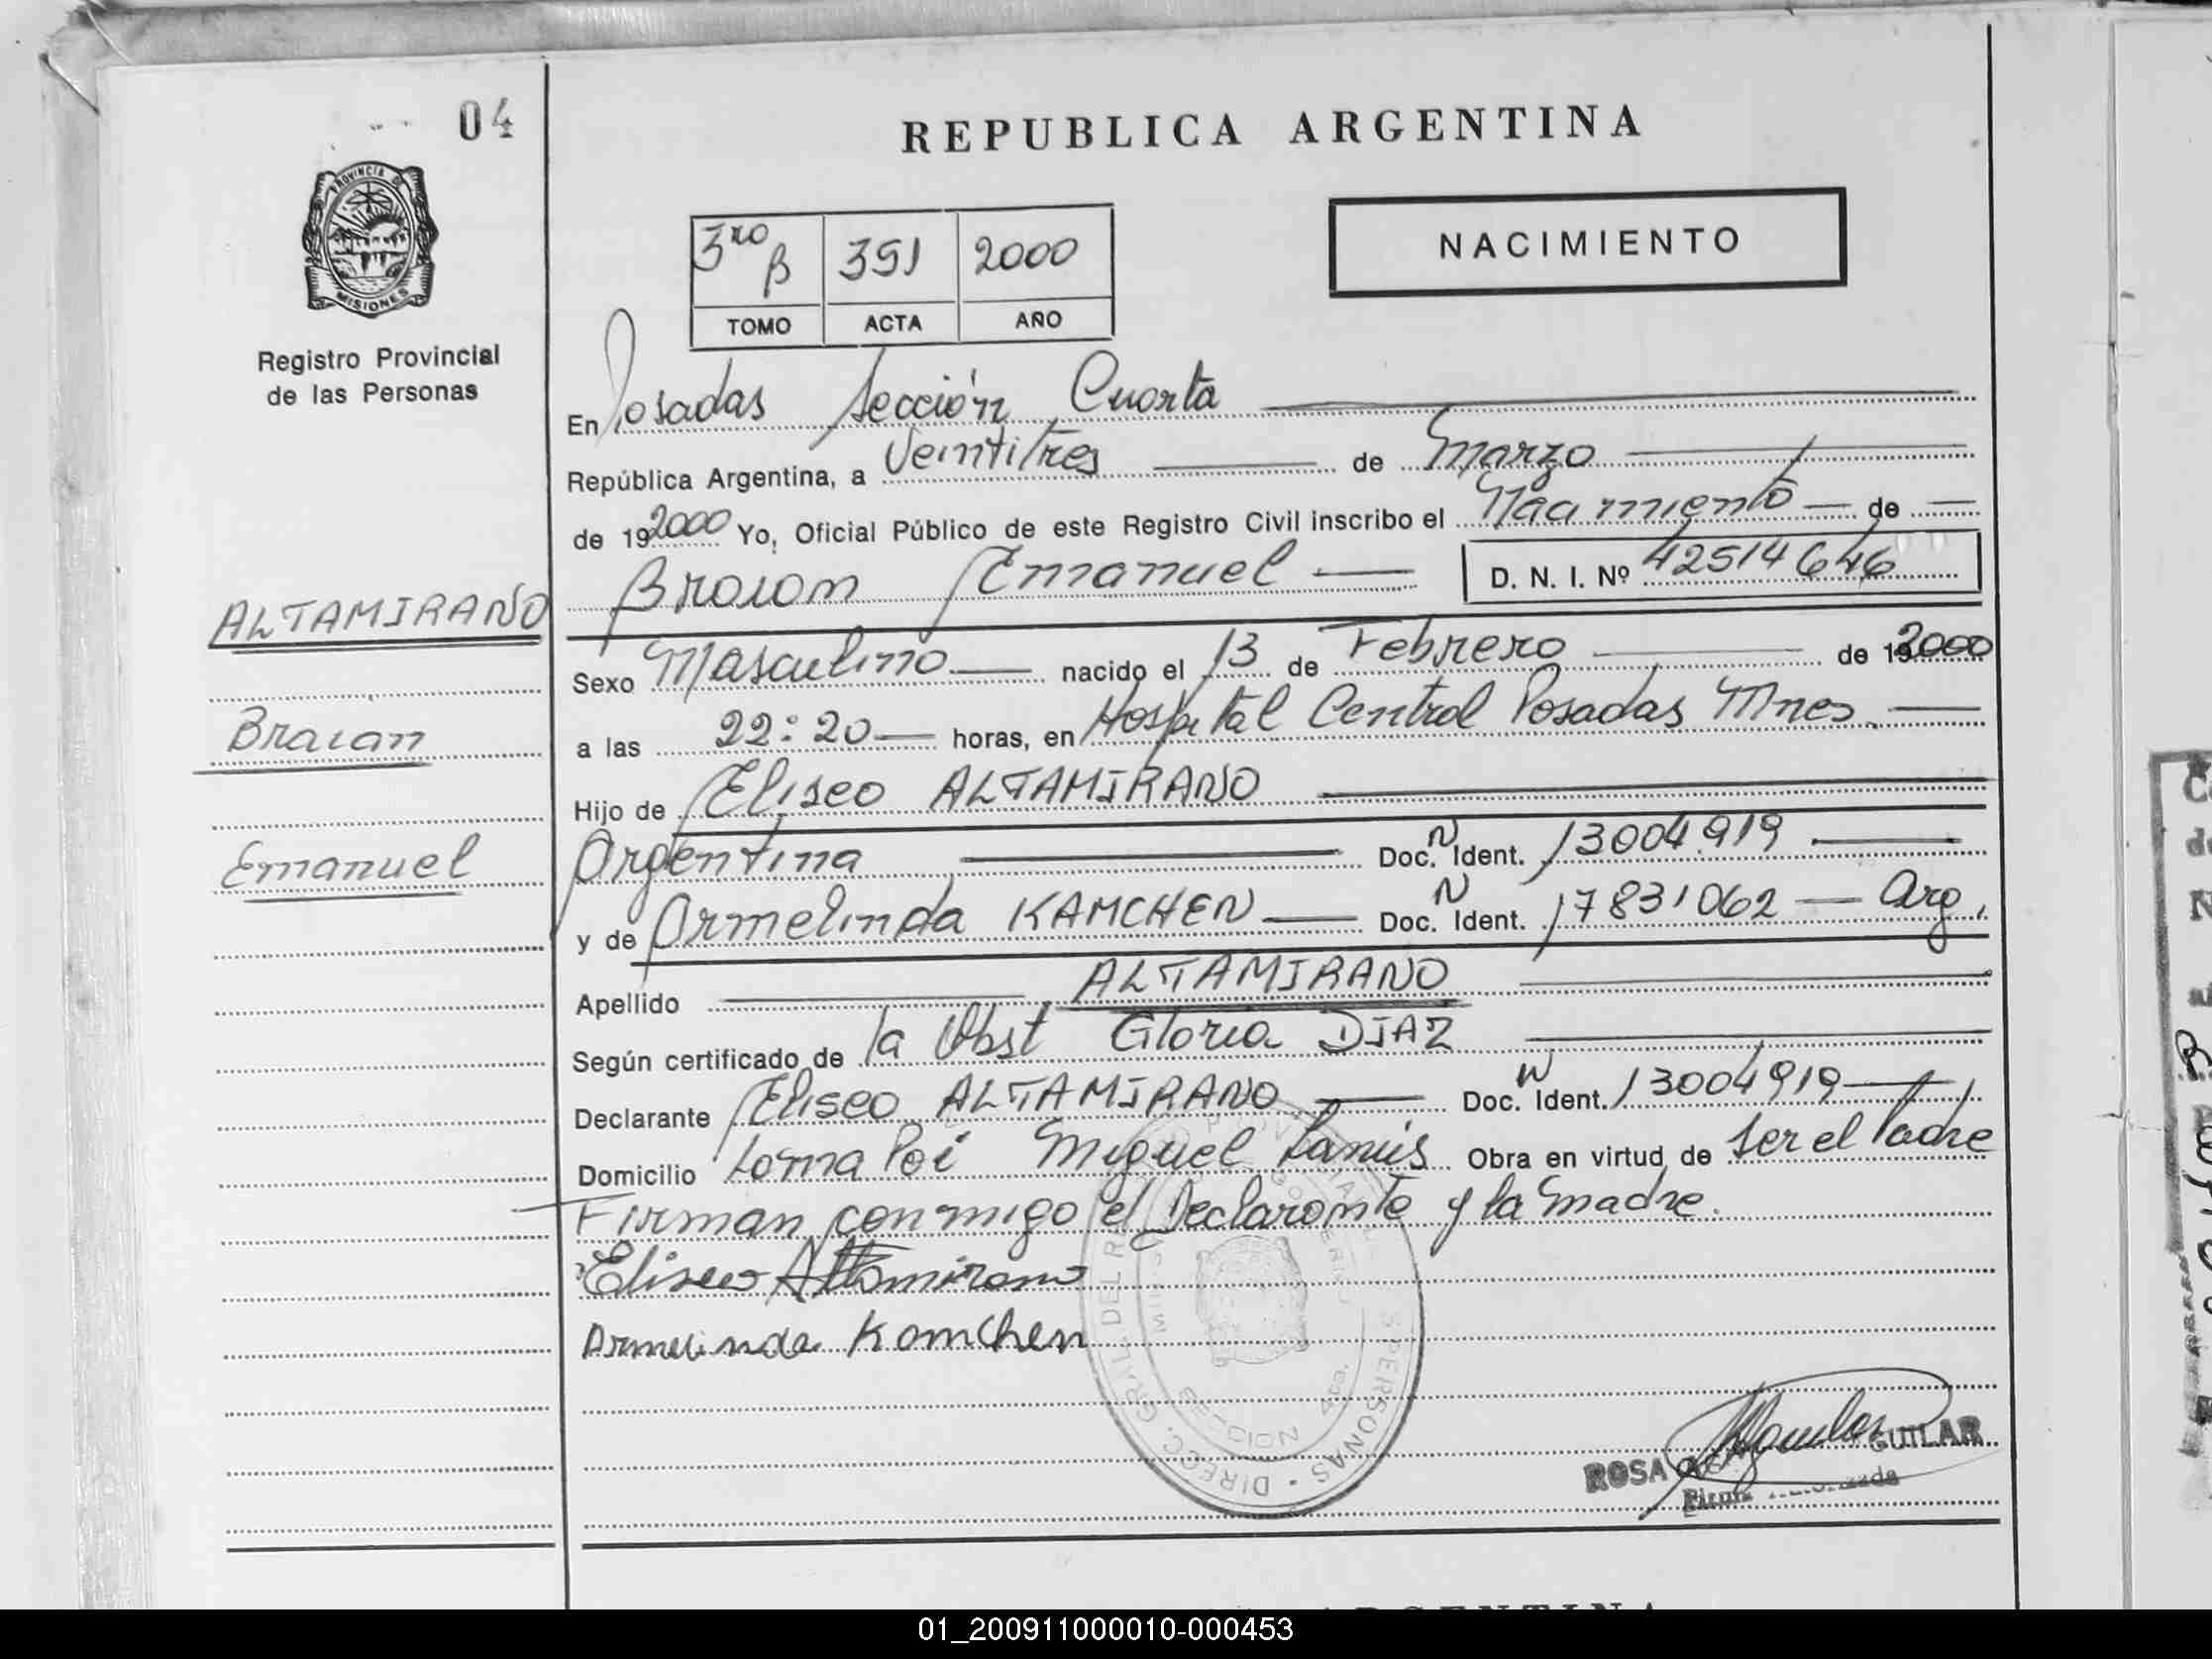 04
REPUBLICA ARGENTINA
PROVINCIA DE
MISIONES
Registro Provincial
de las Personas
NACIMIENTO
3ro B 391 2000
TOMO ACTA AÑO
En Posadas Sección Cuarta
República Argentina, a Veintitres de Marzo
de 192000 Yo, Oficial Público de este Registro Civil inscribo el Nacimiento de
Braian Emanuel D. N. I. Nº 42514646
ALTAMIRANO
Braian
Emanuel
Sexo Masculino nacido el 13 de Febrero de 192000
a las 22:20 horas, en Hospital Central Posadas Mnes.
Hijo de Eliseo ALTAMIRANO
Argentina Doc. N Ident. 13004.919
y de Armelinda KAMCHEN Doc. N Ident. 17831062 Arg.
Apellido ALTAMIRANO
Según certificado de la Obst Gloria DIAZ
Declarante Eliseo ALTAMIRANO Doc. N Ident. 13004919
Domicilio Loma Poi Miguel Lanús Obra en virtud de ser el Padre
Firman conmigo el Declarante y la Madre.
Eliseo Altamirano
Armelinda Kamchen
SECCION 4ta.
PERSONAS - DIREC. GRAL. DEL
ROSA AGUILAR
Firma
ARGENTINA
01_200911000010-000453